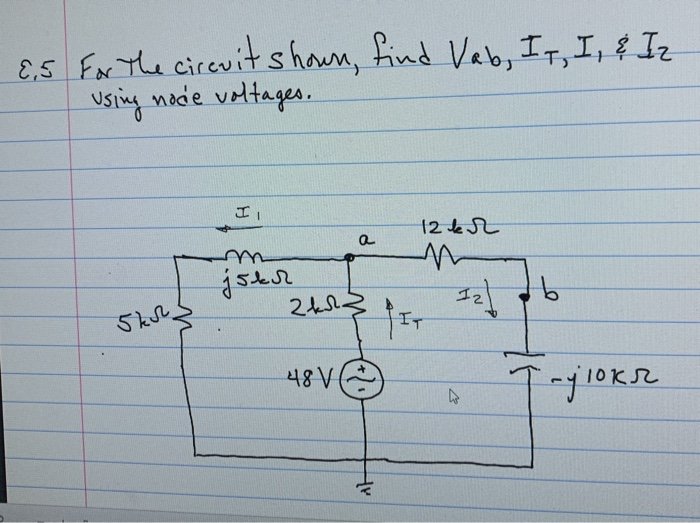 E.5 For the circuit shown, find Vab, IT, I, & I2
using node voltages.
I1
a
12 kΩ
j5kΩ
I2
b
2kΩ
IT
5kΩ
48 V
+
-
-j10KΩ